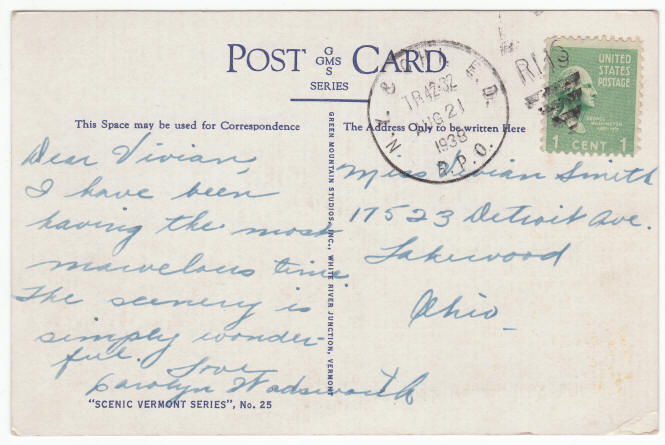 POST CARD
G
GMS
S
SERIES
This Space may be used for Correspondence
The Address Only to be written Here
Dear Vivian,
I have been
having the most
marvelous time.
The scenery is
simply wonder-
ful. Love
Carolyn Wadsworth
"SCENIC VERMONT SERIES", No. 25
GREEN MOUNTAIN STUDIOS, INC., WHITE RIVER JUNCTION, VERMONT
N.Y. & CHI. E.D.
TR.42-32
AUG 21
1938
R.P.O.
RMS
UNITED
STATES
POSTAGE
1 CENT 1
Miss Vivian Smith
17523 Detroit Ave.
Lakewood
Ohio